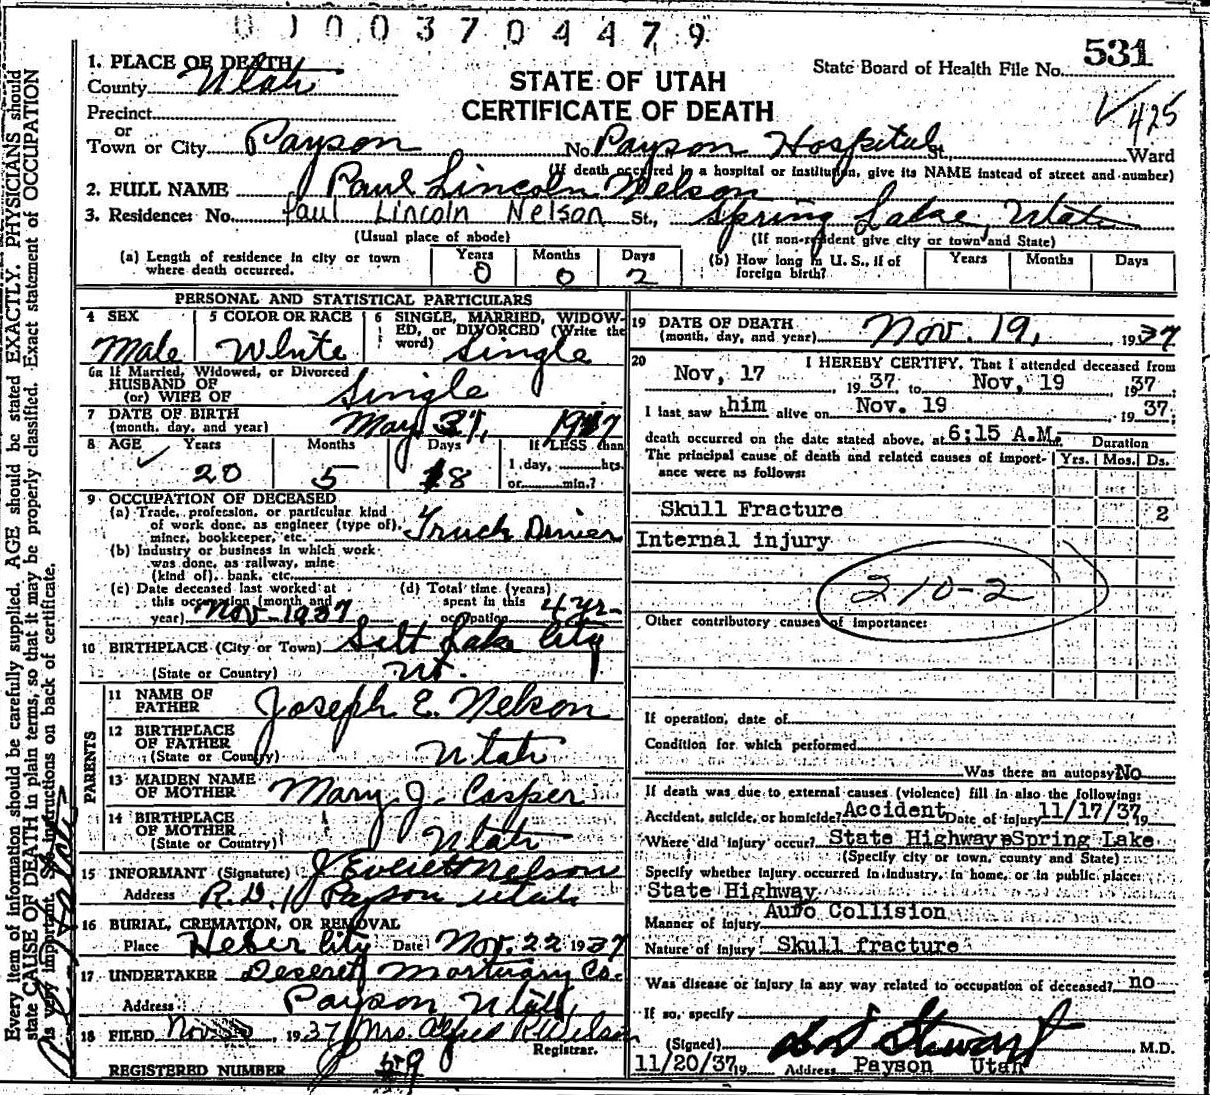 0 1 0 0 3 7 0 4 4 7 9
531
1. PLACE OF DEATH
County Utah
STATE OF UTAH
CERTIFICATE OF DEATH
State Board of Health File No.
425
Precinct
or
Town or City Payson No. Payson Hospital St. Ward
(If death occurred in a hospital or institution, give its NAME instead of street and number)
2. FULL NAME Paul Lincoln Nelson
3. Residence: No. Paul Lincoln Nelson St., Spring Lake, Utah
(Usual place of abode)
(If non-resident give city or town and State)
(a) Length of residence in city or town where death occurred. Years 0 Months 0 Days 2
(b) How long in U. S., if of foreign birth? Years Months Days
PERSONAL AND STATISTICAL PARTICULARS
4 SEX Male
5 COLOR OR RACE White
6 SINGLE, MARRIED, WIDOWED, or DIVORCED (Write the word) Single
6a If Married, Widowed, or Divorced
HUSBAND OF
(or) WIFE OF Single
7 DATE OF BIRTH
(month, day, and year) May 31, 1917
8 AGE Years 20 Months 5 Days 18 If LESS than
1 day, hrs.
or min.?
9 OCCUPATION OF DECEASED
(a) Trade, profession, or particular kind
of work done, as engineer (type of),
miner, bookkeeper, etc. Truck Driver
(b) Industry or business in which work
was done, as railway, mine
(kind of), bank, etc.
(c) Date deceased last worked at
this occupation (month and
year) Nov-1937
(d) Total time (years)
spent in this
occupation 4 yr-
10 BIRTHPLACE (City or Town) Salt Lake City
(State or Country) Ut.
PARENTS
11 NAME OF
FATHER Joseph E. Nelson
12 BIRTHPLACE
OF FATHER
(State or Country) Utah
13 MAIDEN NAME
OF MOTHER Mary J. Casper
14 BIRTHPLACE
OF MOTHER
(State or Country) Utah
15 INFORMANT (Signature) J Everett Nelson
Address R.D.1 Payson Utah
16 BURIAL, CREMATION, OR REMOVAL
Place Heber City Date Nov. 22 1937
17 UNDERTAKER Deseret Mortuary Co.
Address Payson Utah
18 FILED Nov 1937 Mrs. Alfred R Wilson
Registrar.
REGISTERED NUMBER
19 DATE OF DEATH
(month, day, and year) Nov. 19, 1937
20 I HEREBY CERTIFY, That I attended deceased from
Nov, 17 1937. to Nov, 19 1937.
I last saw him alive on Nov. 19 1937.
death occurred on the date stated above, at 6:15 A.M. Duration
The principal cause of death and related causes of importance were as follows: Yrs. Mos. Ds.
Skull Fracture 2
Internal injury
210-2
Other contributory causes of importance:
If operation, date of
Condition for which performed
Was there an autopsy No
If death was due to external causes (violence) fill in also the following:
Accident, suicide, or homicide? Accident Date of injury 11/17/37 19
Where did injury occur? State Highway Spring Lake
(Specify city or town, county and State)
Specify whether injury occurred in industry, in home, or in public place:
State Highway
Manner of injury Auto Collision
Nature of injury Skull fracture
Was disease or injury in any way related to occupation of deceased? no
If so, specify
(Signed) Stewart M.D.
11/20/37 19 Address Payson Utah
Every item of information should be carefully supplied. AGE should be stated EXACTLY. PHYSICIANS should
state CAUSE OF DEATH in plain terms, so that it may be properly classified. Exact statement of OCCUPATION
is very important. See instructions on back of certificate.